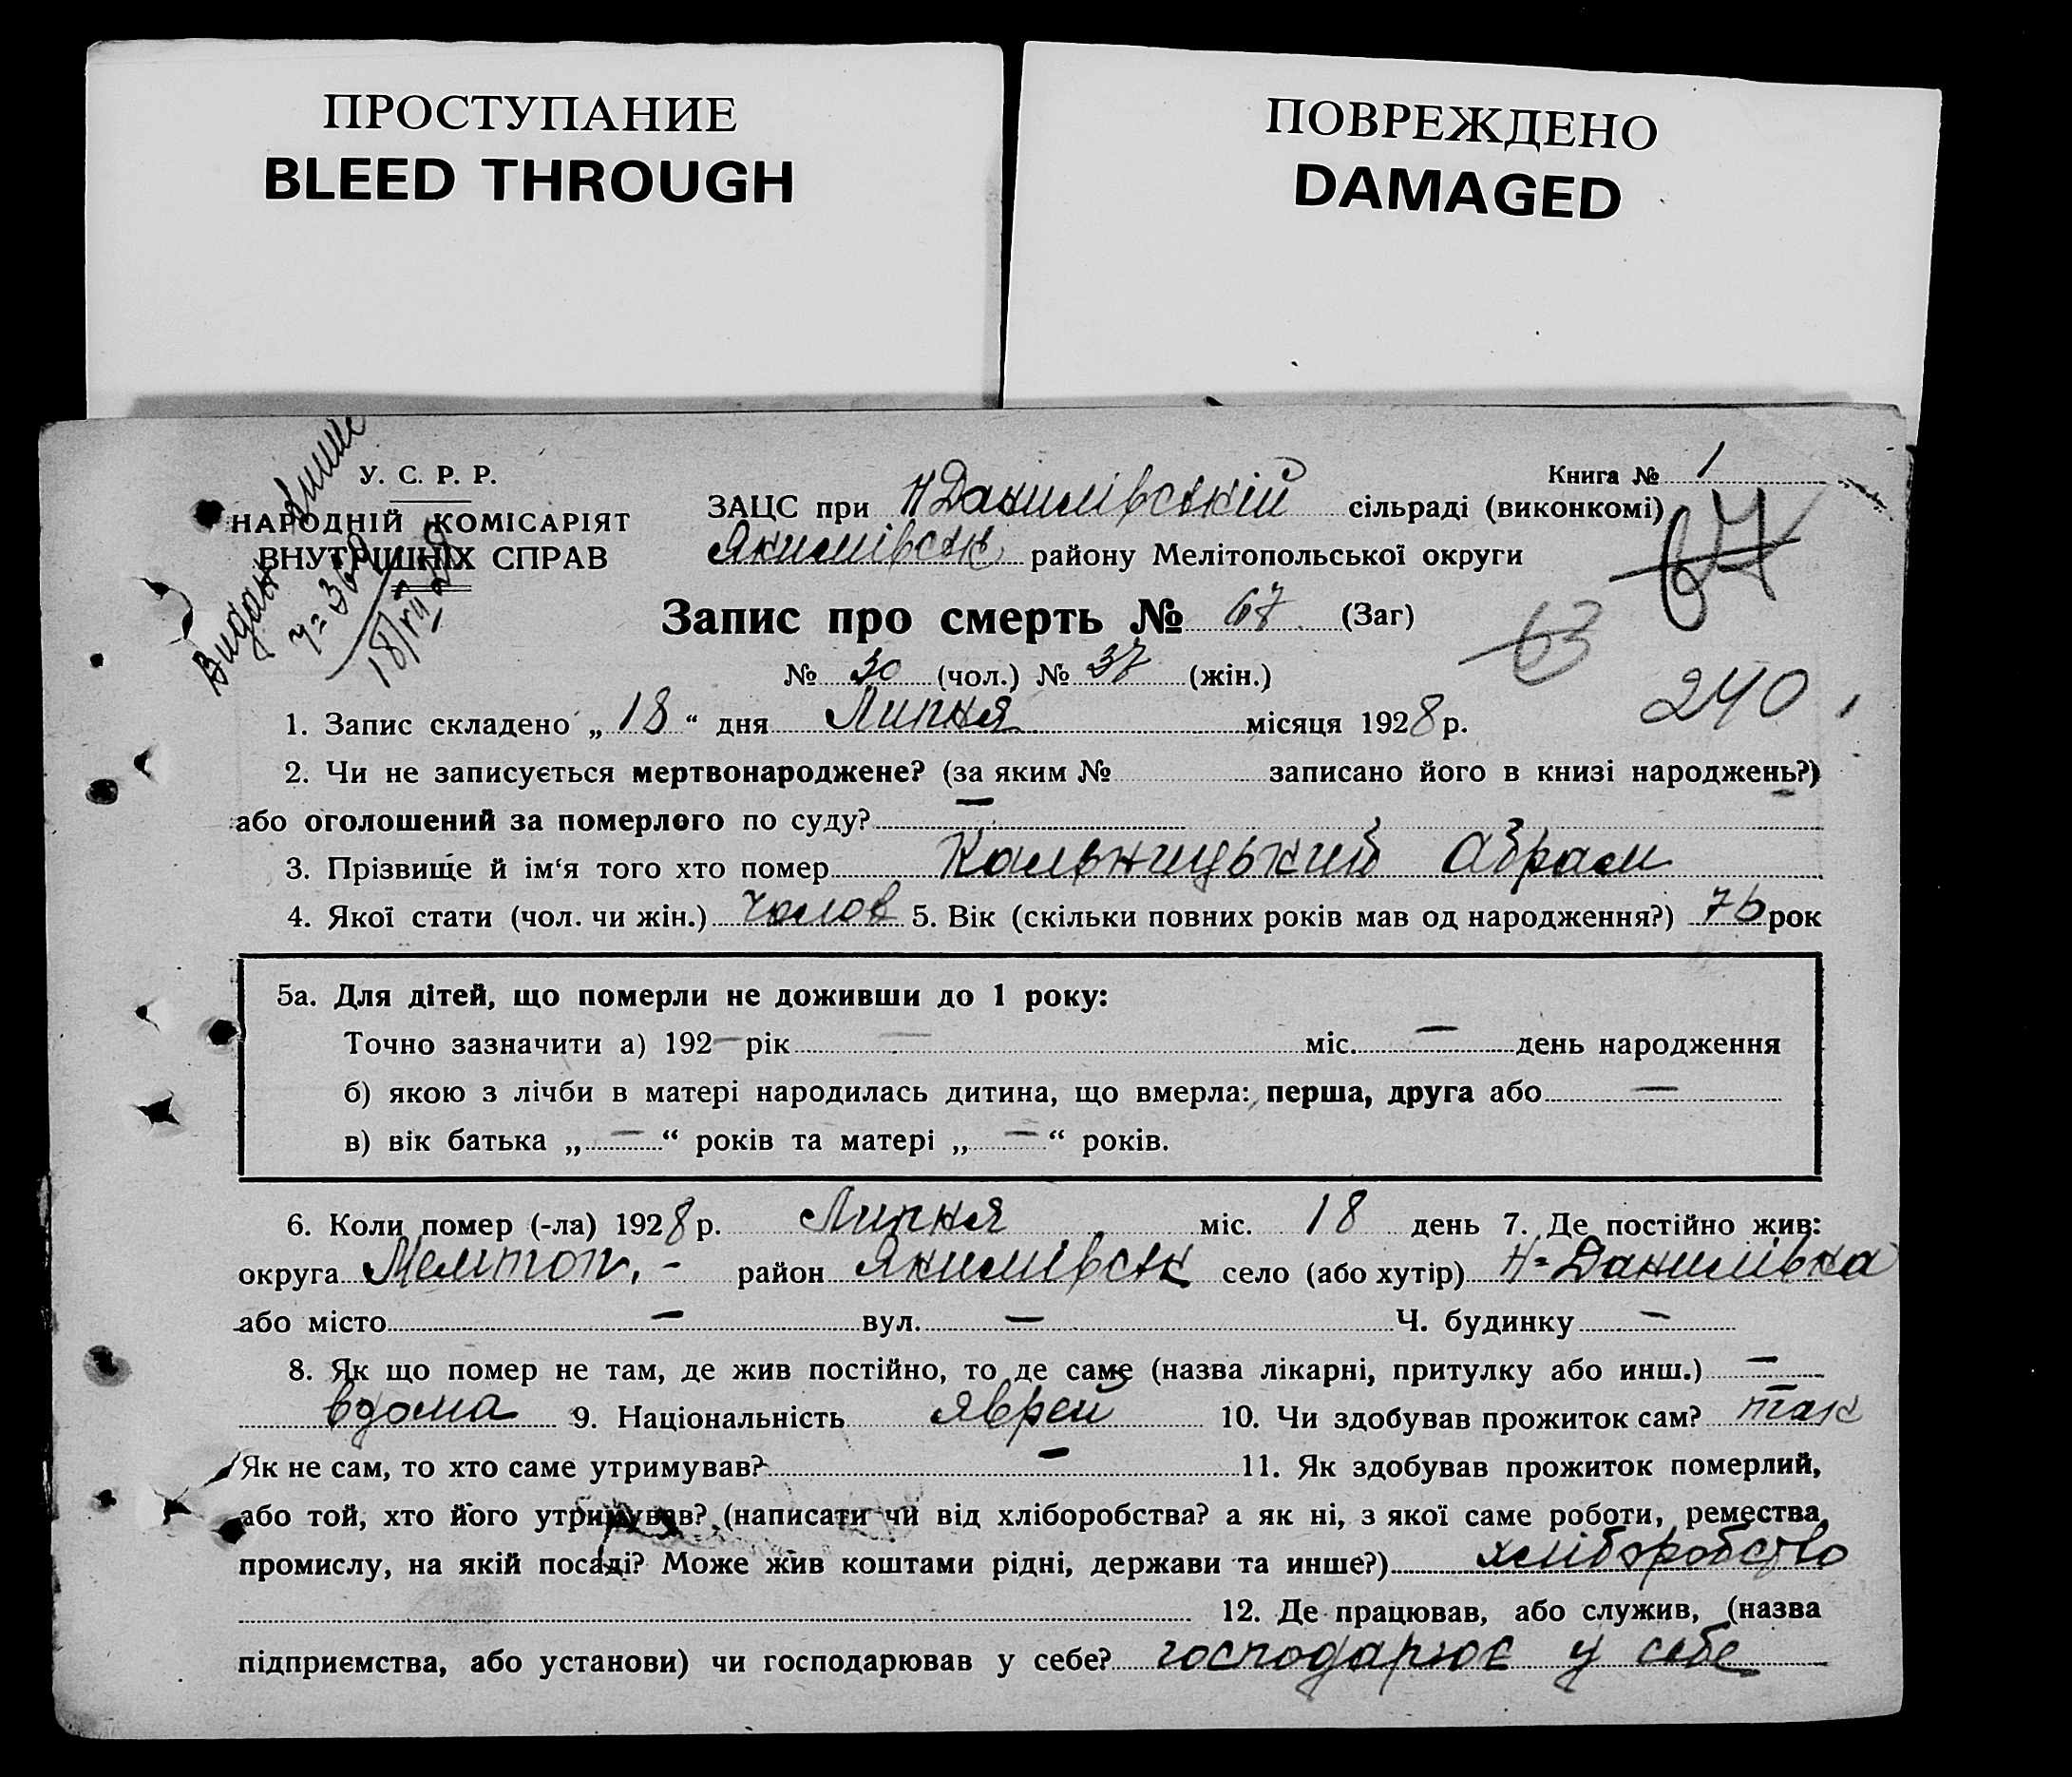 ПРОСТУПАНИЕ
BLEED THROUGH
ПОВРЕЖДЕНО
DAMAGED
У. С. Р. Р.
НАРОДНІЙ КОМІСАРІЯТ
ВНУТРІШНІХ СПРАВ
Видан
18/VII
Книга № 1
ЗАЦС при Н Данилівській сільраді (виконкомі)
Якимівськ району Мелітопольської округи
64
Запис про смерть № 67 (Заг)
63
№ 30 (чол.) № 37 (жін.)
240
1. Запис складено „ 18 “ дня Липня місяця 1928 р.
2. Чи не записується мертвонароджене? (за яким № записано його в книзі народжень?) —
або оголошений за померлого по суду? —
3. Прізвище й ім‘я того хто помер Кальницький Абрам
4. Якої стати (чол. чи жін.) чолов 5. Вік (скільки повних років мав од народження?) 76 рок
5а. Для дітей, що померли не доживши до 1 року:
Точно зазначити а) 192— рік — міс. — день народження
б) якою з лічби в матері народилась дитина, що вмерла: перша, друга або —
в) вік батька „ — “ років та матері „ — “ років.
6. Коли помер (-ла) 1928 р. Липня міс. 18 день 7. Де постійно жив:
округа Мелітоп. - район Якимівськ село (або хутір) Н-Данилівка
або місто — вул. — Ч. будинку —
8. Як що помер не там, де жив постійно, то де саме (назва лікарні, притулку або инш.) —
вдома 9. Національність яврей 10. Чи здобував прожиток сам? так
Як не сам, то хто саме утримував? — 11. Як здобував прожиток померлий,
або той, хто його утримував? (написати чи від хліборобства? а як ні, з якої саме роботи, ремества,
промислу, на якій посаді? Може жив коштами рідні, держави та инше?) хліборобство
12. Де працював, або служив, (назва
підприємства, або установи) чи господарював у себе? господарює у себе